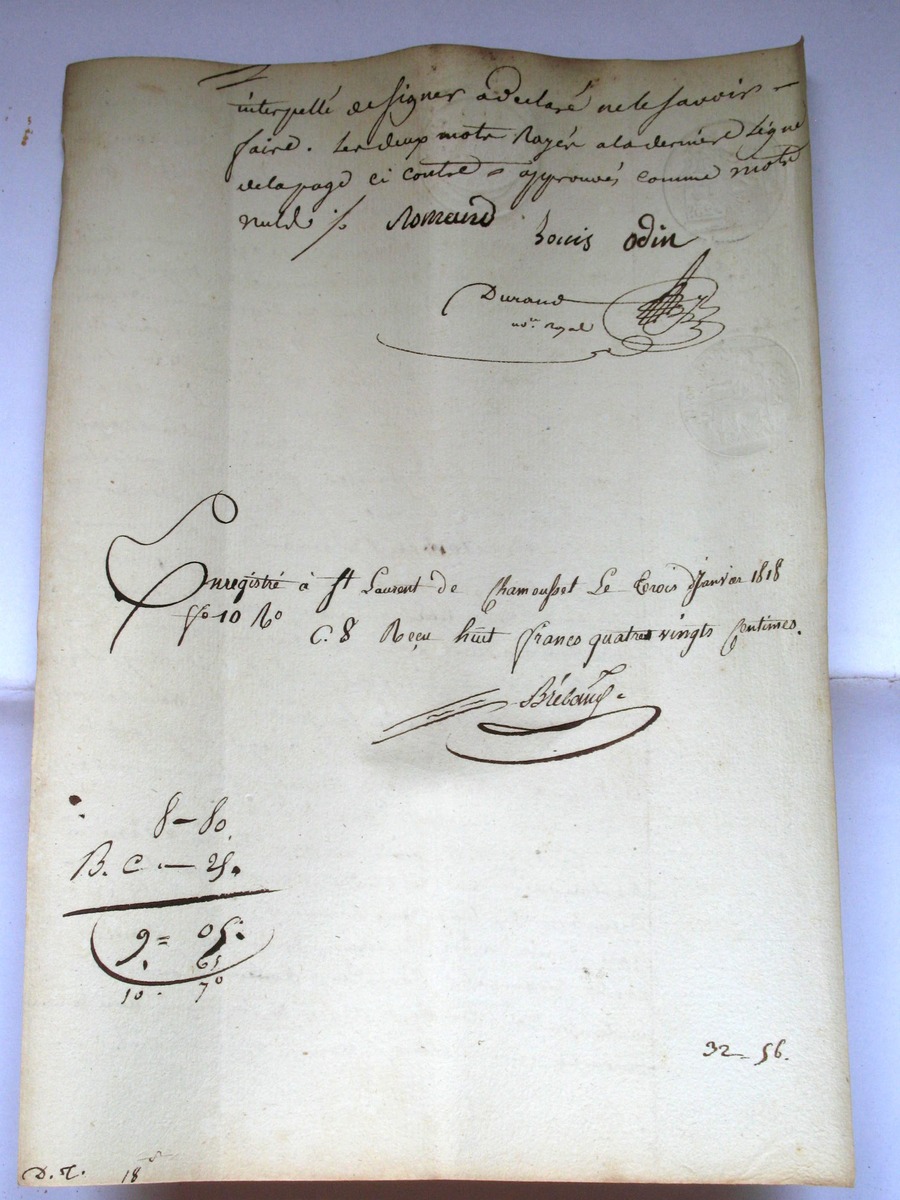 interpellé de signer a declaré ne le savoir -
faire. Les deux mots Rayés a la derniére Ligne
de la page ci contre = approuvés comme mots
nuls ./.
Louis Odin
Durand
no.re Royal
Enregistré à St Laurent de Chamousset Le trois Janvier 1818
fo 10 Ro C. 8 Reçu huit francs quatre vingts centimes.
8 - 80.
B. C. — 25.
9 = 05.
1. 65
10 - 70
32 = 56.
D. T. 18